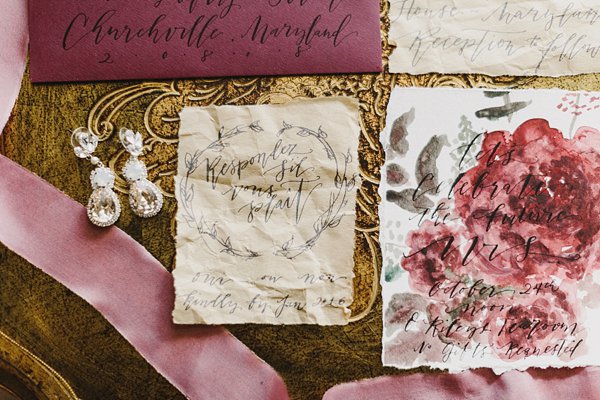 Churchville, Maryland
2 0 8 0 8
House Maryland
Reception to follow
Respondez
Sil
vous
plait
kindly by Jan
Let's
Celebrate
the future
Mrs
October 24th
noon
O'Rileys Tearoom
No Gifts Requested